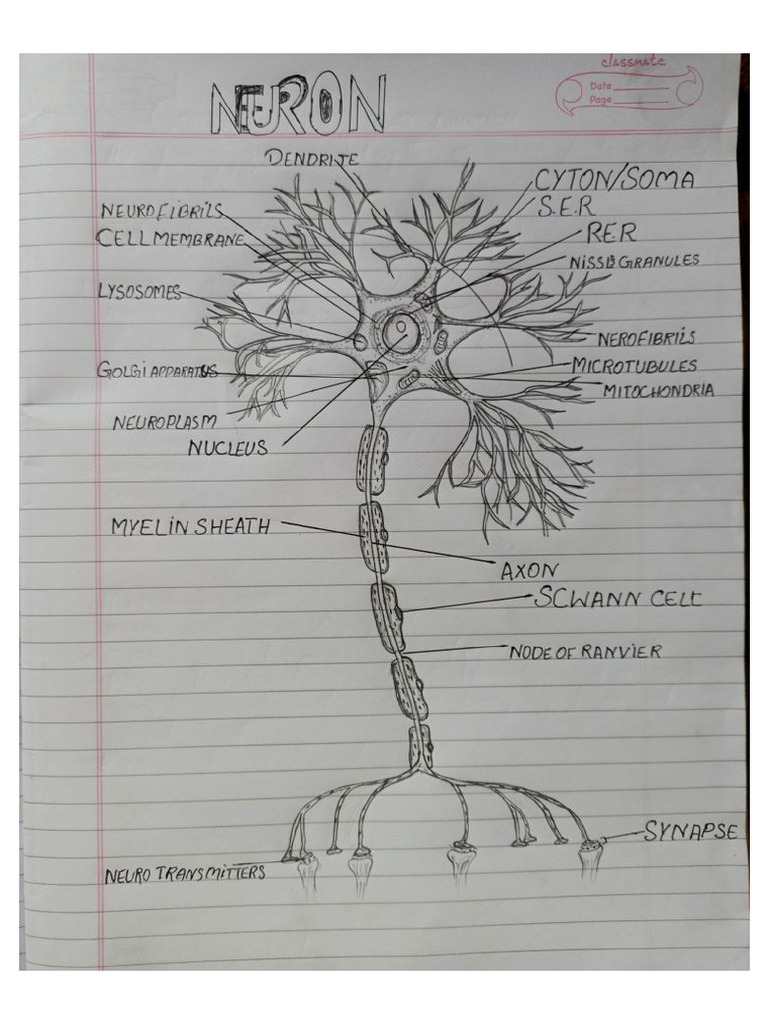 classmate
Date
Page
NEURON
DENDRITE
CYTON/SOMA
S.E.R
NEUROFIBRILS
RER
CELL MEMBRANE
NISSL GRANULES
LYSOSOMES
NEROFIBRILS
GOLGI APPARATUS
MICROTUBULES
MITOCHONDRIA
NEUROPLASM
NUCLEUS
MYELIN SHEATH
AXON
SCWANN CELL
NODE OF RANVIER
SYNAPSE
NEURO TRANSMITTERS